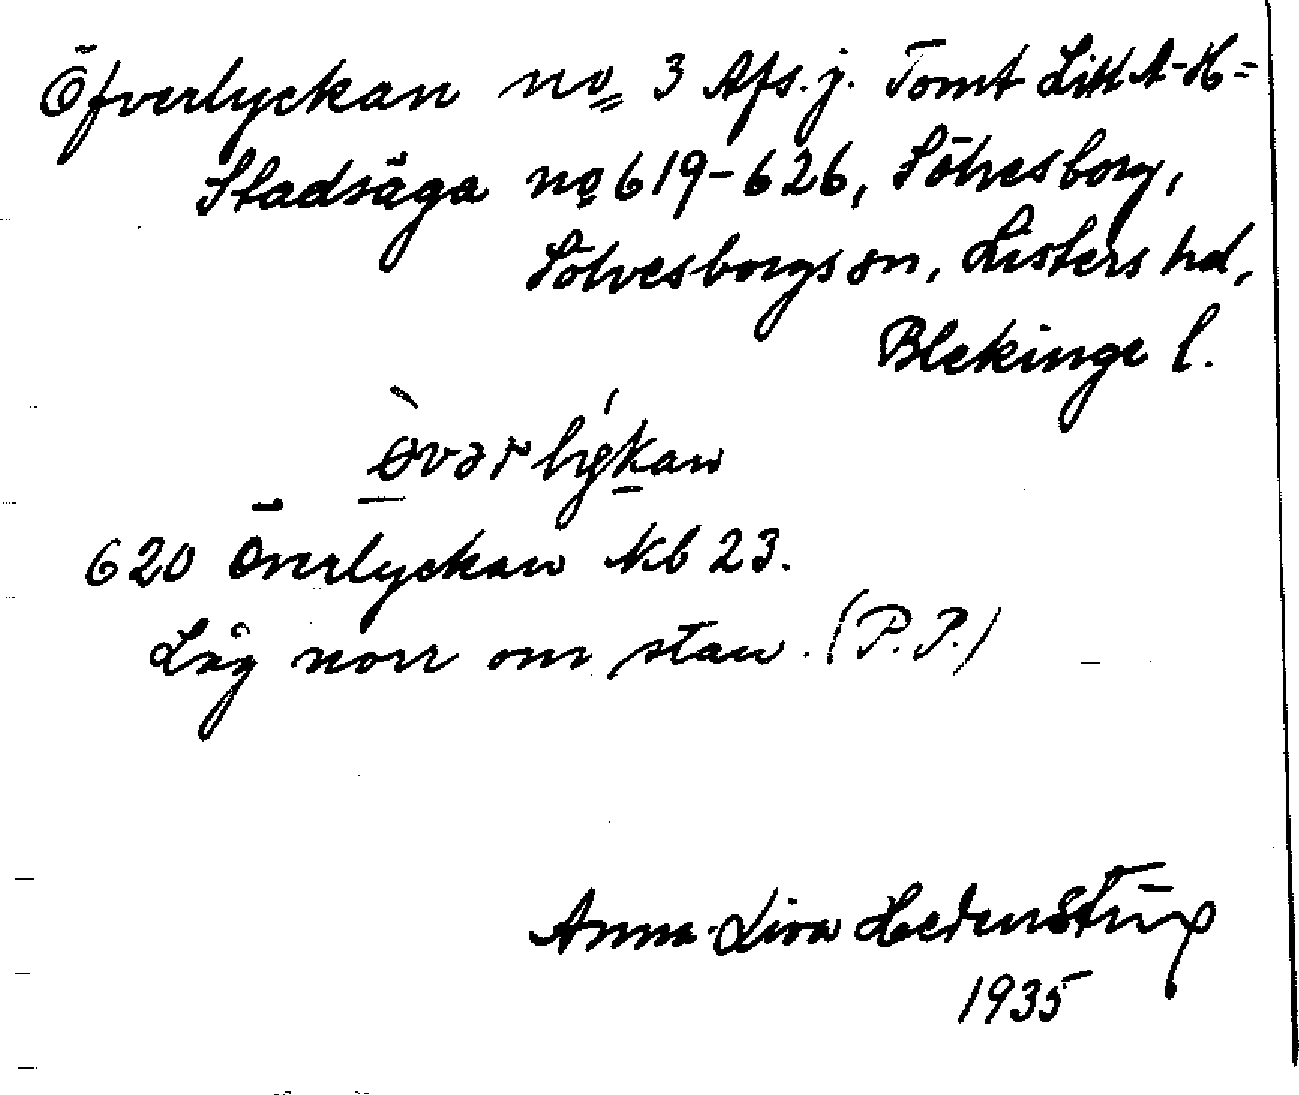 Öfverlyckan no 3 Afs. j. Tomt Litt A-H=
Stadsäga no 619-626, Sölvesborg,
Sölvesborgs sn, Listers hd,
Blekinge l.
620 Överlyckan Kb 23.
Låg norr om stan. (P.P.)
1935